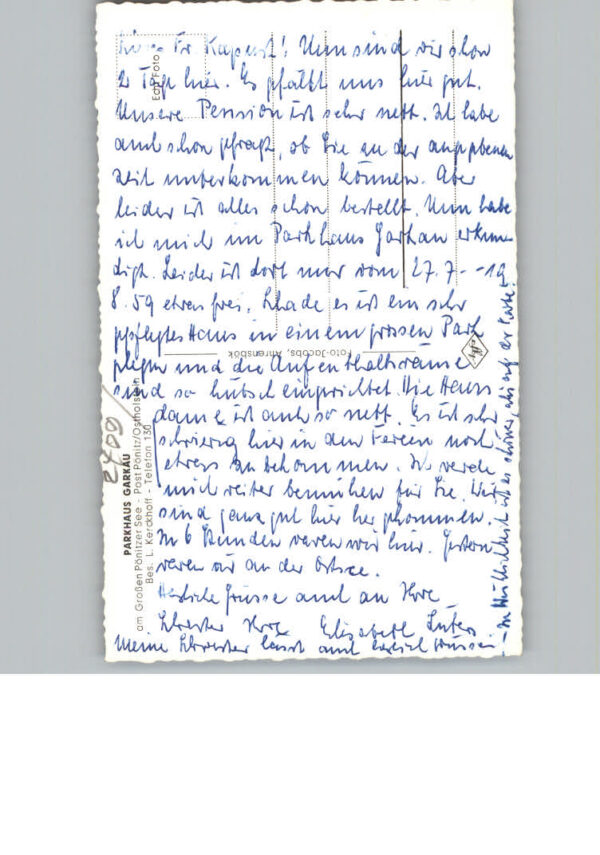 Liebes Frl. Kapust! Nun sind wir schon
2 Tage hier. Es gefällt uns hier gut.
Unsere Pension ist sehr nett. Ich habe
auch schon gefragt, ob Sie zu der angegebenen
Zeit unterkommen können. Aber
leider ist alles schon bestellt. Nun habe
ich mich im Parkhaus Garkau erkun-
digt. Leider ist dort nur vom 27.7. - 19
8.59 etwas frei. Schade es ist ein sehr
gepflegtes Haus in einem grossen Park
gelegen und die Aufenthaltsräume
sind so hübsch eingerichtet. Die Haus
dame ist auch so nett. Es ist sehr
schwierig hier in den Ferien noch
etwas zu bekommen. Ich werde
mich weiter bemühen für Sie. Wir
sind ganz gut hier her gekommen.
In 6 Stunden waren wir hier. Gestern
waren wir an der Ostsee.
Herzliche Grüsse auch an Ihre
Schwester Ihre Elisabeth
Meine Schwester lässt auch herzlich grüssen
In Wirklichkeit ist es schöner, als auf der Karte!
Echt Foto
Foto-Jacobs, Ahrensbök
Agfa
2400/
PARKHAUS GARKAU
am Großen Pönitzer See - Post Pönitz/Ostholstein
Bes. L. Kerckhoff - Telefon 130